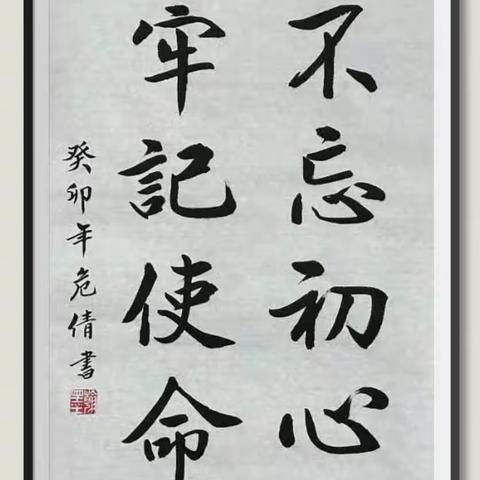 不忘初心
牢記使命
癸卯年危倩書